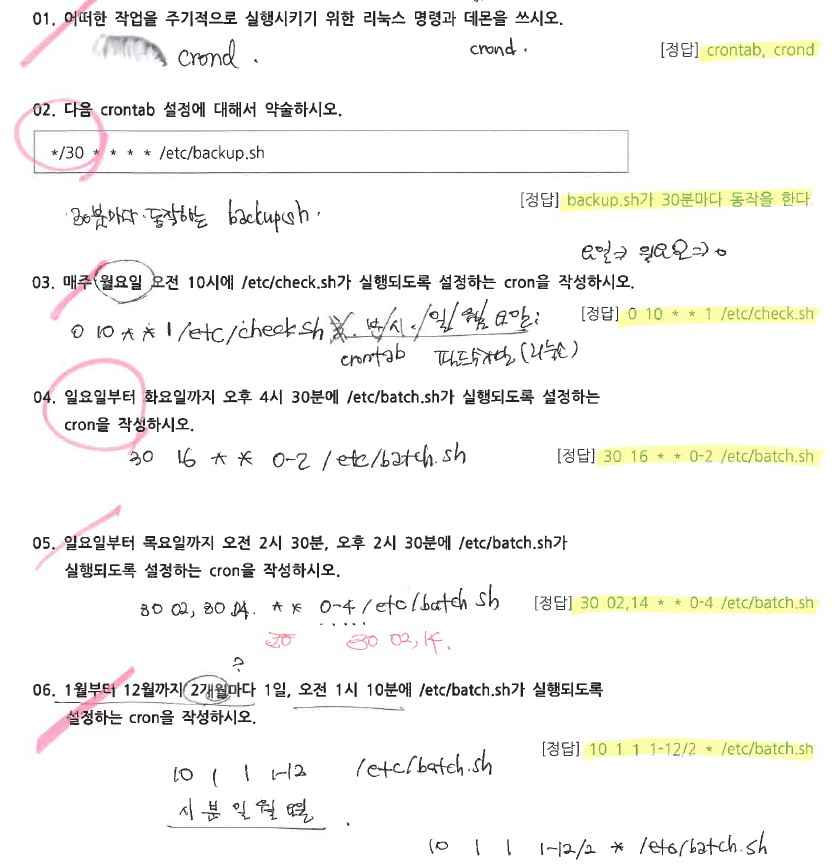 01. 어떠한 작업을 주기적으로 실행시키기 위한 리눅스 명령과 데몬을 쓰시오.
crond .
crond .
[정답] crontab, crond
02. 다음 crontab 설정에 대해서 약술하시오.
*/30 * * * * /etc/backup.sh
[정답] backup.sh가 30분마다 동작을 한다.
30분마다 동작하는 backup.sh.
요일⇒ 일요일⇒0
03. 매주 월요일 오전 10시에 /etc/check.sh가 실행되도록 설정하는 cron을 작성하시오.
[정답] 0 10 * * 1 /etc/check.sh
0 10 * * 1 /etc/check.sh 분/시/일/월 요일
crontab (리눅스)
04. 일요일부터 화요일까지 오후 4시 30분에 /etc/batch.sh가 실행되도록 설정하는
cron을 작성하시오.
30 16 * * 0-2 /etc/batch.sh
[정답] 30 16 * * 0-2 /etc/batch.sh
05. 일요일부터 목요일까지 오전 2시 30분, 오후 2시 30분에 /etc/batch.sh가
실행되도록 설정하는 cron을 작성하시오.
30 02, 30 14. * * 0-4 /etc/batch.sh
[정답] 30 02,14 * * 0-4 /etc/batch.sh
30 30 02, 14.
?
06. 1월부터 12월까지 2개월마다 1일, 오전 1시 10분에 /etc/batch.sh가 실행되도록
설정하는 cron을 작성하시오.
[정답] 10 1 1 1-12/2 * /etc/batch.sh
10 1 1 1-12 /etc/batch.sh
시 분 일 월 요일
10 1 1 1-12/2 * /etc/batch.sh